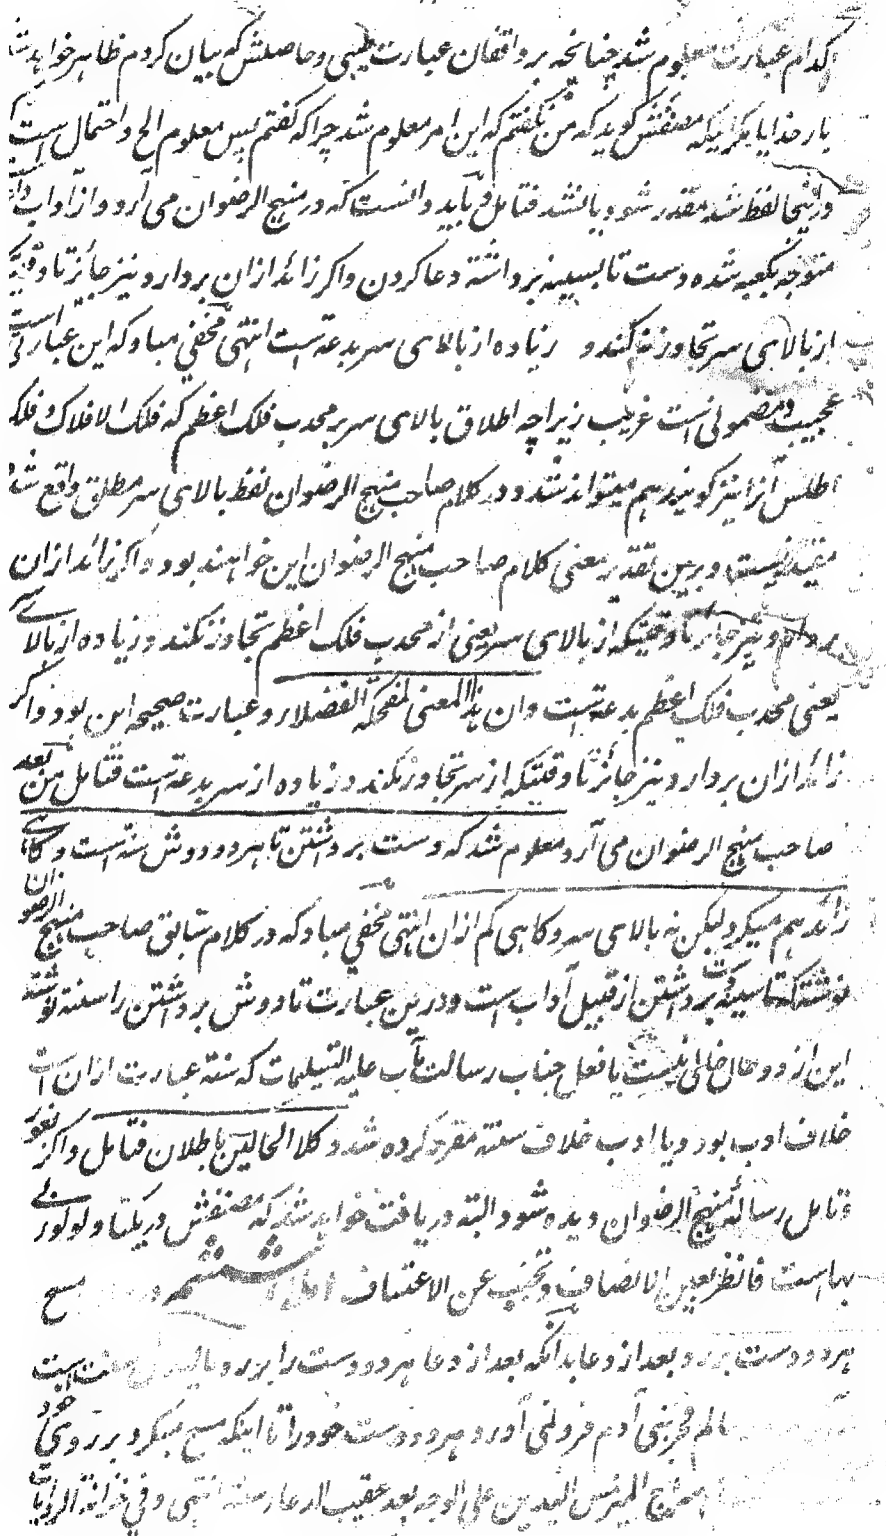 کدام عبارت معلوم شد چنانچه بر واقفان عبارت طیبی و حاصلش که بیان کردم ظاهر خواهد شد
بار خدایا مگر اینکه مصنفش گوید که من نگفتم که این امر معلوم شد چرا که گفتم پس معلوم الخ و احتمال است
و اینجا لفظ شد مقدر شود یا نشد فتامل و باید دانست که در منهج الرضوان می آرد و از آداب دعا
متوجه بکعبه شده دست تا بسینه برداشته دعا کردن و اگر زائد ازان بردارد نیز جائز تا وقتیکه
از بالای سر تجاوز نه کند و زیاده از بالای سر بدعت است انتهی مخفی مباد که این عبارتی است
عجیب و مضمونی است غریب زیرا چه اطلاق بالای سر بر محدب فلک اعظم که فلک الافلاک و فلک
اطلس آنرا نیز گویند هم میتواند شد و در کلام صاحب منهج الرضوان لفظ بالای سر مطلق واقع شده
مقید نیست و برین تقدیر معنی کلام صاحب منهج الرضوان این خواهند بود و اگر زائد ازان
بردارد و نیز جائز تا وقتیکه از بالای سر یعنی از محدب فلک اعظم تجاوز نکند و زیاده از بالای سر
یعنی محدب فلک اعظم بدعت است و ان هذا المعنی لمضحکة الفضلاء و عبارت صحیحه این بود و اگر
زائد ازان بردارد نیز جائز تا وقتیکه از سر تجاوز نکند و زیاده از سر بدعت است فتامل من بعد
صاحب منهج الرضوان می آرد معلوم شد که دست برداشتن تا هر دو دوش سنت است و گاهی ازان
زائد هم میکرد لیکن نه بالای سر و گاهی کم ازان انتهی مخفی مباد که در کلام سابق صاحب منهج الرضوان
نوشته که تا سینه دست برداشتن از قبیل آداب است و درین عبارت تا دوش برداشتن را سنته نوشته
این از دو حال خالی نیست یا فعل جناب رسالت مآب علیه التسلیمات که سنته عبارت ازان است
خلاف ادب بود و یا ادب خلاف سنته مقرر کرده شد و کلا الحالین باطلان فتامل و اگر بغور
و تامل رساله منهج الرضوان دیده شود البته دریافت خواهد شد که مصنفش در یکتا و لولوی بی
بهاست فانظر بعین الانصاف و تجنب عن الاعتساف ششم مسح
هر دو دست بر رو بعد از دعا بدانکه بعد از دعا هر دو دست را بر رو مالیدن سنت است
عالم فخر بنی آدم فرو نمی آورد هر دو دست خود را تا اینکه مسح میکرد بر روی خود
علی الوجه بعد عقیب الدعاء سنة انتهی و فی خزانة الروایات